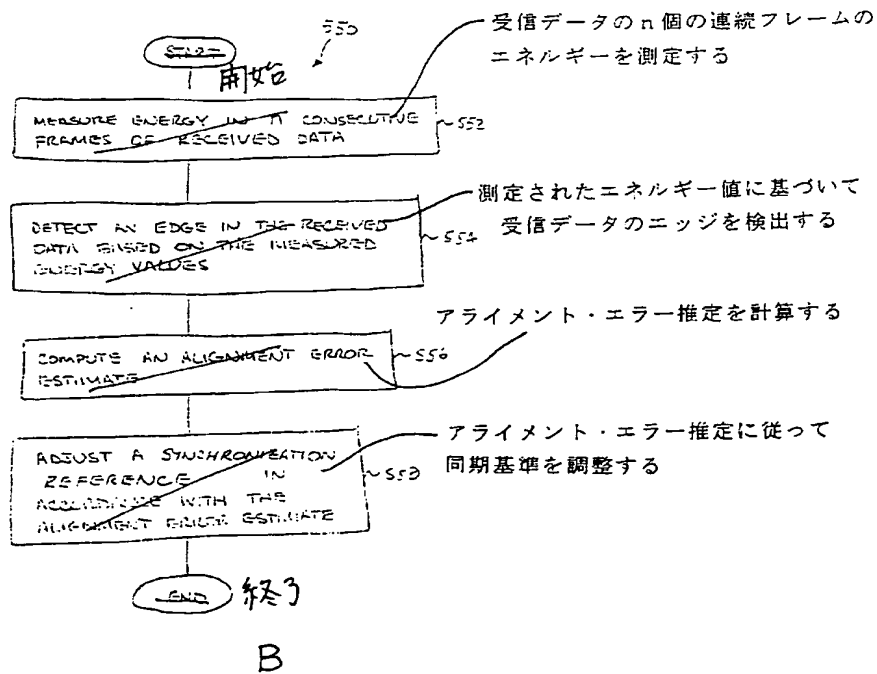 550
START
開始
受信データのn個の連続フレームの
エネルギーを測定する
MEASURE ENERGY IN n CONSECUTIVE
FRAMES OF RECEIVED DATA
552
測定されたエネルギー値に基づいて
受信データのエッジを検出する
DETECT AN EDGE IN THE RECEIVED
DATA BASED ON THE MEASURED
ENERGY VALUES
554
アライメント・エラー推定を計算する
COMPUTE AN ALIGNMENT ERROR
ESTIMATE
556
アライメント・エラー推定に従って
同期基準を調整する
ADJUST A SYNCHRONIZATION
REFERENCE IN
ACCORDANCE WITH THE
ALIGNMENT ERROR ESTIMATE
558
END
終了
B